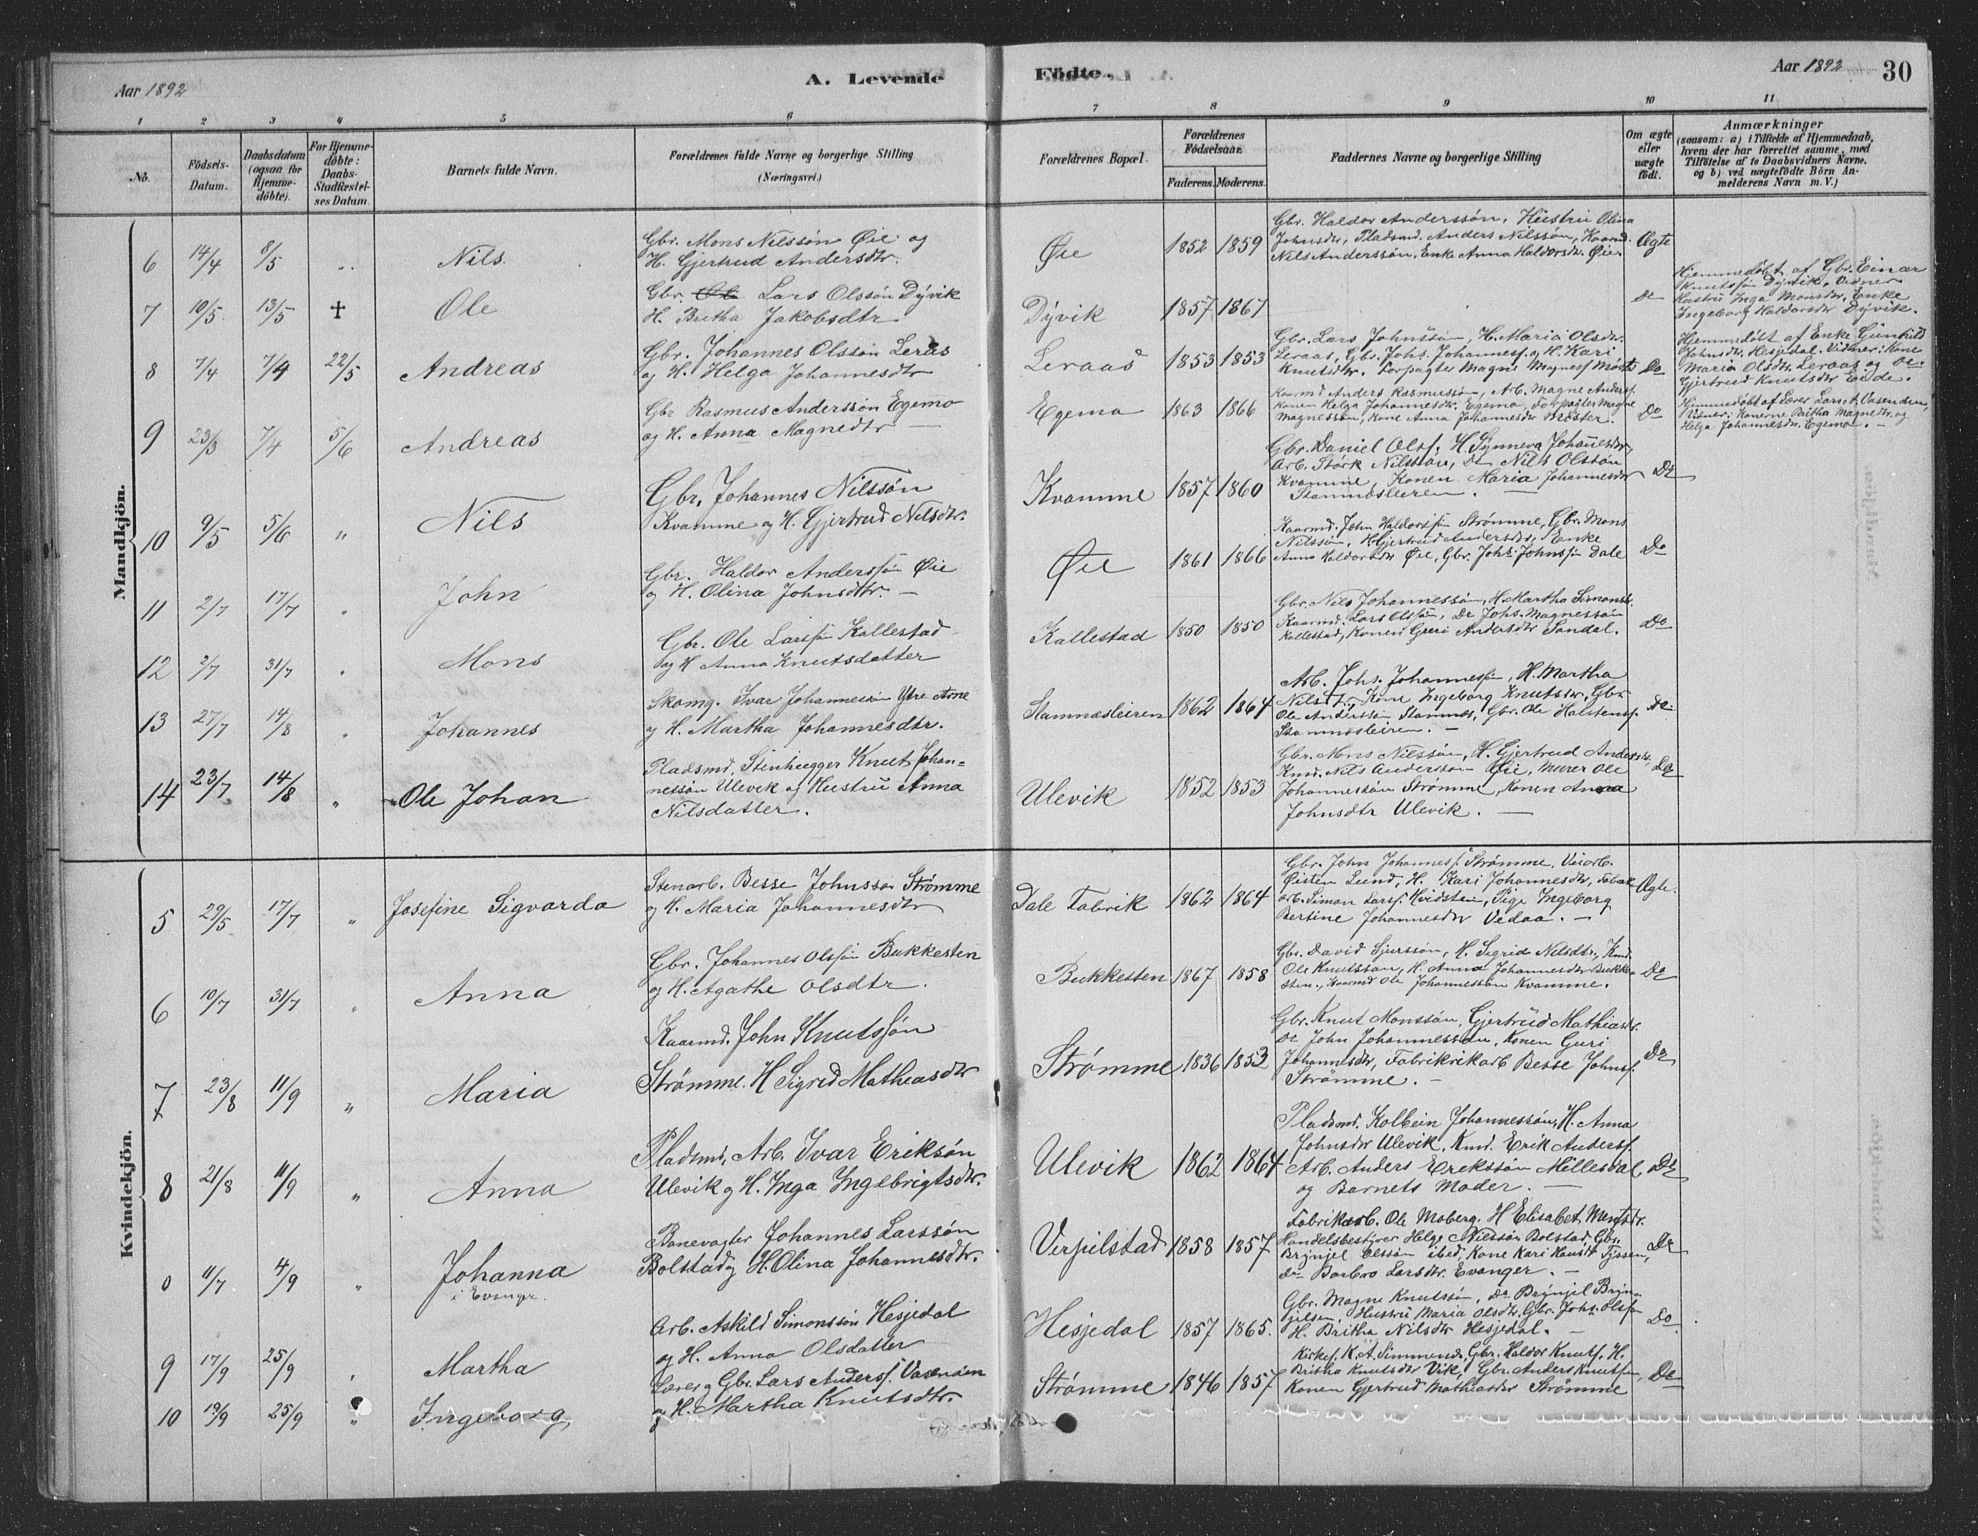 Aar 1892
A. Levende
Födte.
Aar 1892
30
1 2 3 4 5 6 7 8 9 10 11
No.
Födsels-
Datum.
Daabsdatum
(ogsaa for
Hjemme-
döbte).
For Hjemme-
döbte:
Daabs-
Stadfæstel-
ses Datum.
Barnets fulde Navn.
Forældrenes fulde Navne og borgerlige Stilling
(Næringsvei.)
Forældrenes Bopæl.
Forældrenes
Födselsaar.
Faderens. Moderens.
Faddernes Navne og borgerlige Stilling
Om ægte
eller
uægte
födt.
Anmærkninger
(saasom: a) i Tilfælde af Hjemmedaab,
hvem der har forrettet samme, med
Tilföielse af to Daabsvidners Navne.
og b) ved uægtefödte Börn An-
melderens Navn m. V.)
Mandkjön.
6 14/4 8/5 Nils
Gbr. Mons Nilssön Øie og
H. Gjertrud Andersdtr.
Øie 1852 1859
Gbr. Haldor Anderssön, Hustru Olina
Johnsdtr, Pladsmd. Anders Nilssön, Kaarmd.
Nils Anderssön, Enke Anna Haldorsdtr Øie
Ægte
7 10/5 13/5 ✝ Ole
Gbr. Ole Lars Olssön Dÿvik
H. Britha Jakobsdtr
Dÿvik 1857 1867
Do
Hjemmedöbt af Gbr. Einar
Knutssön Dÿvik. Vidner
Hustru Inga Monsdtr, Enke
Ingeborg Haldorsdtr Dÿvik.
8 7/4 7/4 22/5 Andreas
Gbr. Johannes Olssön Leraas
og H. Helga Johannesdtr
Leraas 1853 1853
Gbr. Lars Johnssön, H. Maria Olsdtr.
Leraas, Gbr. Johs. Johannesf. og H. Kari
Knutsdtr. Forpagter Magne Magnesf Möster
Do
Hjemmedöbt af Enke Gunhild
Johnsdtr. Hesjedal. Vidner: Kone
Maria Olsdtr. Leraas og
Gjertrud Knutsdtr Eide.
9 23/3 7/4 5/6 Andreas
Gbr Rasmus Anderssön Egemo
og H. Anna Magnedtr
Egemo 1863 1866
Kaarmd Anders Rasmussön, Arb. Magne Andersf.
Konen Helga Johannesdtr. Egemo, Forpagter Magne
Magnessön, Kone Anna Johannesdtr Möster.
Do
Hjemmedöbt af Lærer Lars A. Vasenden,
Vidner: Konerne Britha Magnedtr. og
Helga Johannesdtr. Egemo.
10 9/5 5/6 " Nils
Gbr. Johannes Nilssön
Kvamme og H. Gjertrud Nilsdtr.
Kvamme 1857 1860
Gbr. Daniel Olsf. H. Synneva Johannesdtr,
Arb. Störk Nilssön, Do Nils Olssön
Kvamme, Konen Maria Johannesdtr
Stamnæsleiren.
Do
11 2/7 17/7 John
Gbr. Haldor Anderssön Øie
og H. Olina Johnsdtr.
Øie 1861 1866
Kaarmd. John Haldorssön Strømme, Gbr. Mons
Nilssön, H Gjertrud Andersdtr, Enke
Anna Haldorsdtr Øie, Gbr. Johs. Johnssön Dale
Do
12 2/7 31/7 Mons
Gbr. Ole Larssön Kallestad
og H Anna Knutsdatter
Kallestad 1850 1850
Gbr. Nils Johannessön, H. Martha Simonsdtr.
Kaarmd. Lars Olssön, Do Johs. Magnessön
Kallestad, Konen Guri Andersdtr Sandal.
Do
13 27/7 14/8 Johannes
Skomg. Ivar Johannessön Ytre Arne
og H. Martha Johannesdtr.
Stamnæsleiren 1862 1864
Arb. Johs. Johannessön, H. Martha
Nilsdtr, Kone Ingeborg Knutsdtr, Gbr
Ole Anderssön Stamnæs, Gbr. Ole Halstensf.
Stamnæsleiren.
Do
14 23/7 14/8 " Ole Johan
Pladsmd, Stenhugger Knut Johan-
nessön Ulevik og Hustru Anna
Nilsdatter.
Ulevik 1852 1853
Gbr. Mons Nilssön, H. Gjertrud Andersdtr.
Kmd. Nils Anderssön Øie, Murer Ole
Johannessön Strømme, Konen Anna
Johnsdtr Ulevik.
Do
Kvindekjön.
5 29/5 17/7 " Josefine Sigvarda
Stenarb. Besse Johnssön Strømme
og H. Maria Johannesdtr
Dale Fabrik 1862 1864
Gbr. John Johannesf. Strømme, Veiarb.
Øisten Lund, H. Kari Johannesdtr, Fabrik
arb. Simon Larsf. Hvidsten, Pige Ingeborg
Bertine Johannesdtr Vedaa.
Ægte.
6 10/7 31/7 Anna
Gbr. Johannes Olssön Bukkesten
og H. Agathe Olsdtr.
Bukkesten 1867 1858
Gbr. David Sjurssön, H. Sigrid Nilsdtr, Kmd.
Ole Knutssön, H. Anna Johannesdtr Bukke-
sten., Kaarmd Ole Johannessön Kvamme.
Do
7 23/8 11/9 " Maria
Kaarmd. John Knutssön
Strømme. H Sigrid Mathiasdtr
Strømme 1836 1853
Gbr. Knut Monssön, Gjertrud Mathiasdtr.
Do John Johannessön, Konen Guri
Johannesdtr, Fabrikrikarb Besse Johnsf.
Strømme.
Do
8 21/8 11/9 " Anna
Pladsmd, Arb. Ivar Eriksön
Ulevik og H. Inga Ingebrigtsdtr.
Ulevik 1862 1864
Pladsmd. Kolbein Johannessön, H. Anna
Johnsdtr Ulevik, Kmd. Erik Andersf.
Arb. Anders Erikssön Millesdal
og Barnets Moder.
Do
0 11/7 4/9 " Johanna
i Evanger.
Banevogter Johannes Larssön
Bolstad og H. Olina Johannesdtr.
Verpilstad 1858 1857
Fabrikarb. Ole Moberg. H Elisabet
Handelsbestyrer Helge Nilssön Bolstad, Gbr.
Brÿnjel Olssön ibed, Kone Kari
Do Barbro Larsdtr. Evanger.
Do
9 17/9 25/9 Martha
Arb. Askild Simonssön Hesjedal
og H. Anna Olsdatter
Hesjedal 1857 1865.
Gbr. Magne Knutssön, Do Brÿnjel Brÿn-
jelsen, Hustru Maria Olsdtr, Gbr. Johs. Olssön
H. Britha Nilsdtr Hesjedal.
Do
10 19/9 25/9 " Ingeborg,
Lærer og Gbr. Lars Andersf. Vasenden
og H. Martha Knutsdtr.
Strømme 1846 1857
Kirkes. K. A. Simmenes, Gbr. Haldor Knutsf. H.
Britha Knutsdtr Vik, Gbr. Anders Knutssön,
Konen Gjertrud Mathiasdtr Strømme
Do